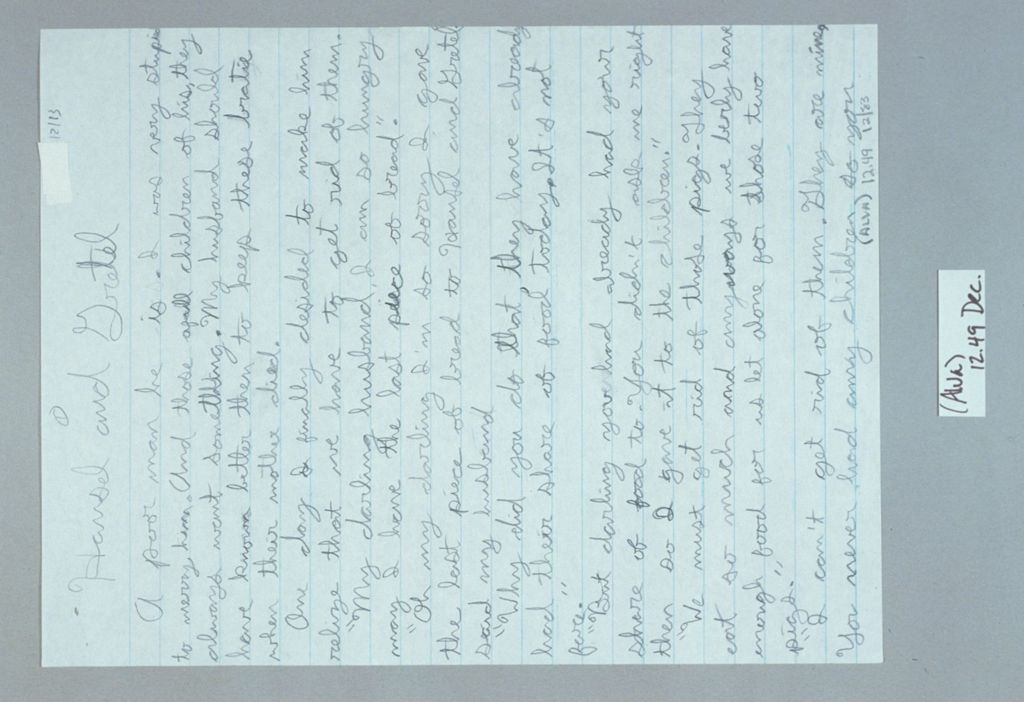 12/13
Hansel and Gretel
A poor man he is. I was very stupi
to merry him. And those children of his, they
always want something. My husband should
have known bitter then to keep these bratie
when their mother died.
One day I finally desided to make him
relize that we have to get rid of them.
"My darling husband, I am so hungry
may I have the last piece of bread."
"Oh my darling I'm so sorry I gave
the last piece of bread to Hansel and Gretel
said my husband
"Why did you do that, they have already
had their share of food today. It's not
faire."
"But darling you had already had your
share of food to. You didn't ask me right
then so I gave it to the children."
"We must get rid of those pigs. They
eat so much and anyways we berly have
enough food for us let alone for those two
pigs."
"I can't get rid of them. They are mine,
You never had any children so you
(ALVA) 12.49 12/83
(Alva)
12.49 Dec.